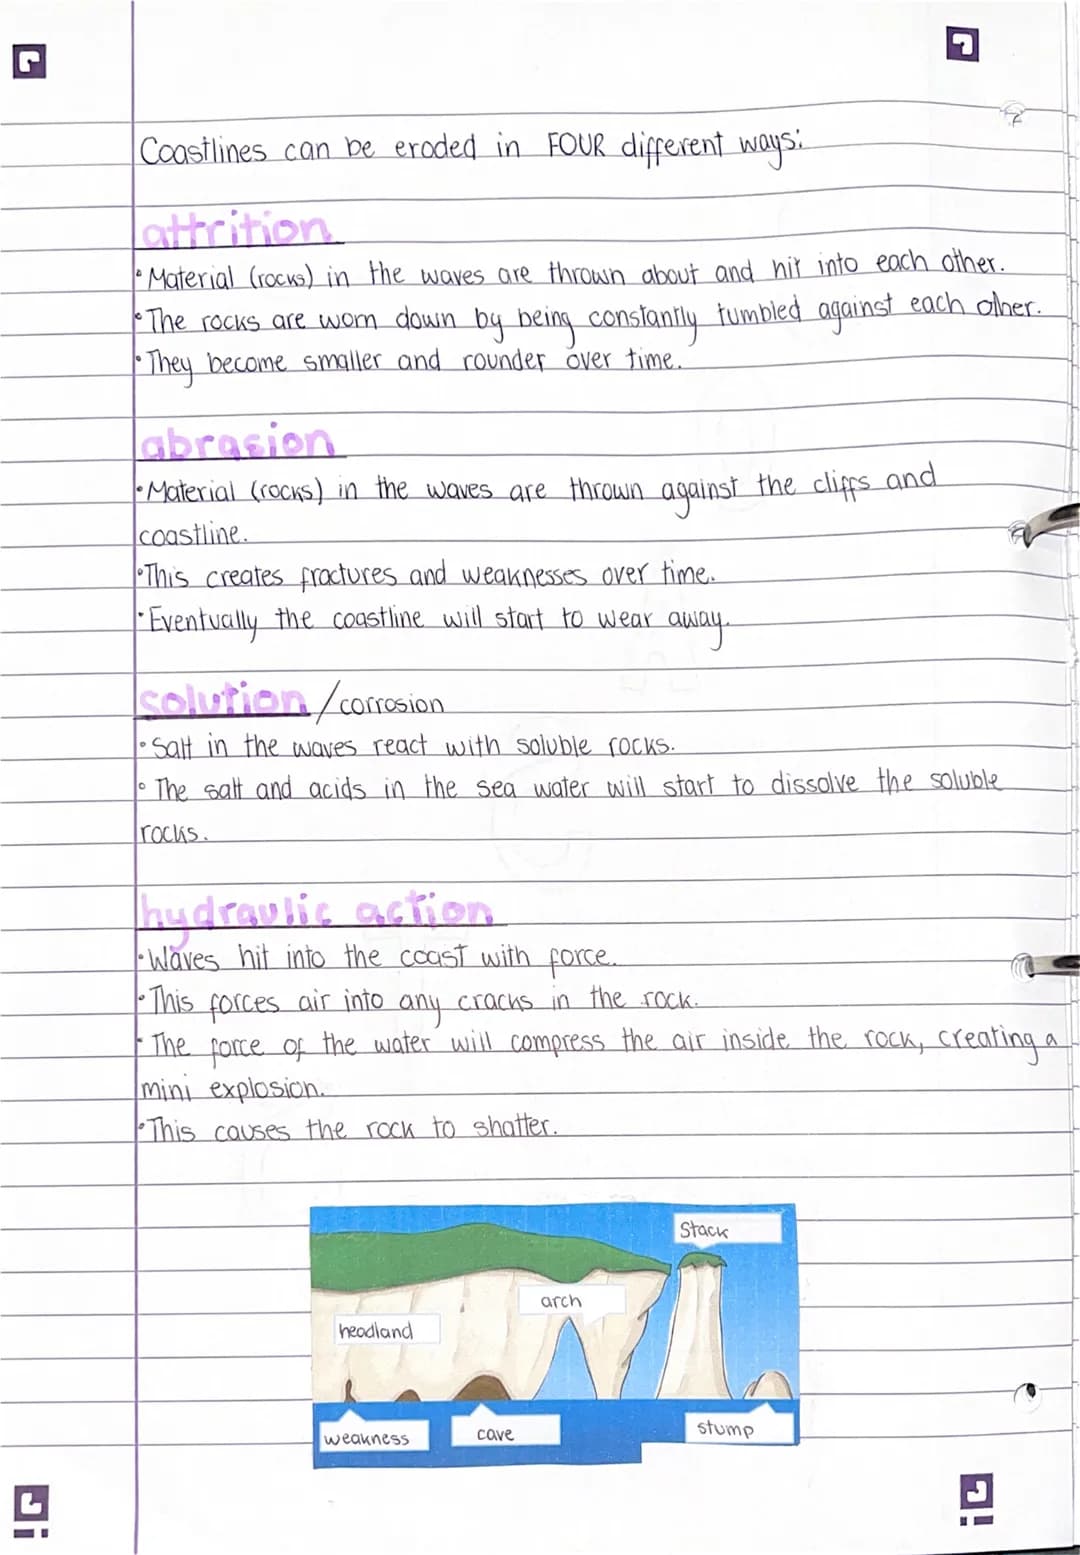 Coastlines can be eroded in FOUR different ways:
attrition
•Material (rocks) in the waves are thrown about and hit into each other.
•The rocks are worn down by being constantly tumbled against each other.
•They become smaller and rounder over time.
abrasion
•Material (rocks) in the waves are thrown against the cliffs and
coastline.
•This creates fractures and weaknesses over time.
•Eventually the coastline will start to wear away.
solution /corrosion
•Salt in the waves react with soluble rocks.
•The salt and acids in the sea water will start to dissolve the soluble
rocks.
hydraulic action
•Waves hit into the coast with force.
•This forces air into any cracks in the rock.
•The force of the water will compress the air inside the rock, creating a
mini explosion.
•This causes the rock to shatter.
Stack
arch
headland
weakness
cave
stump